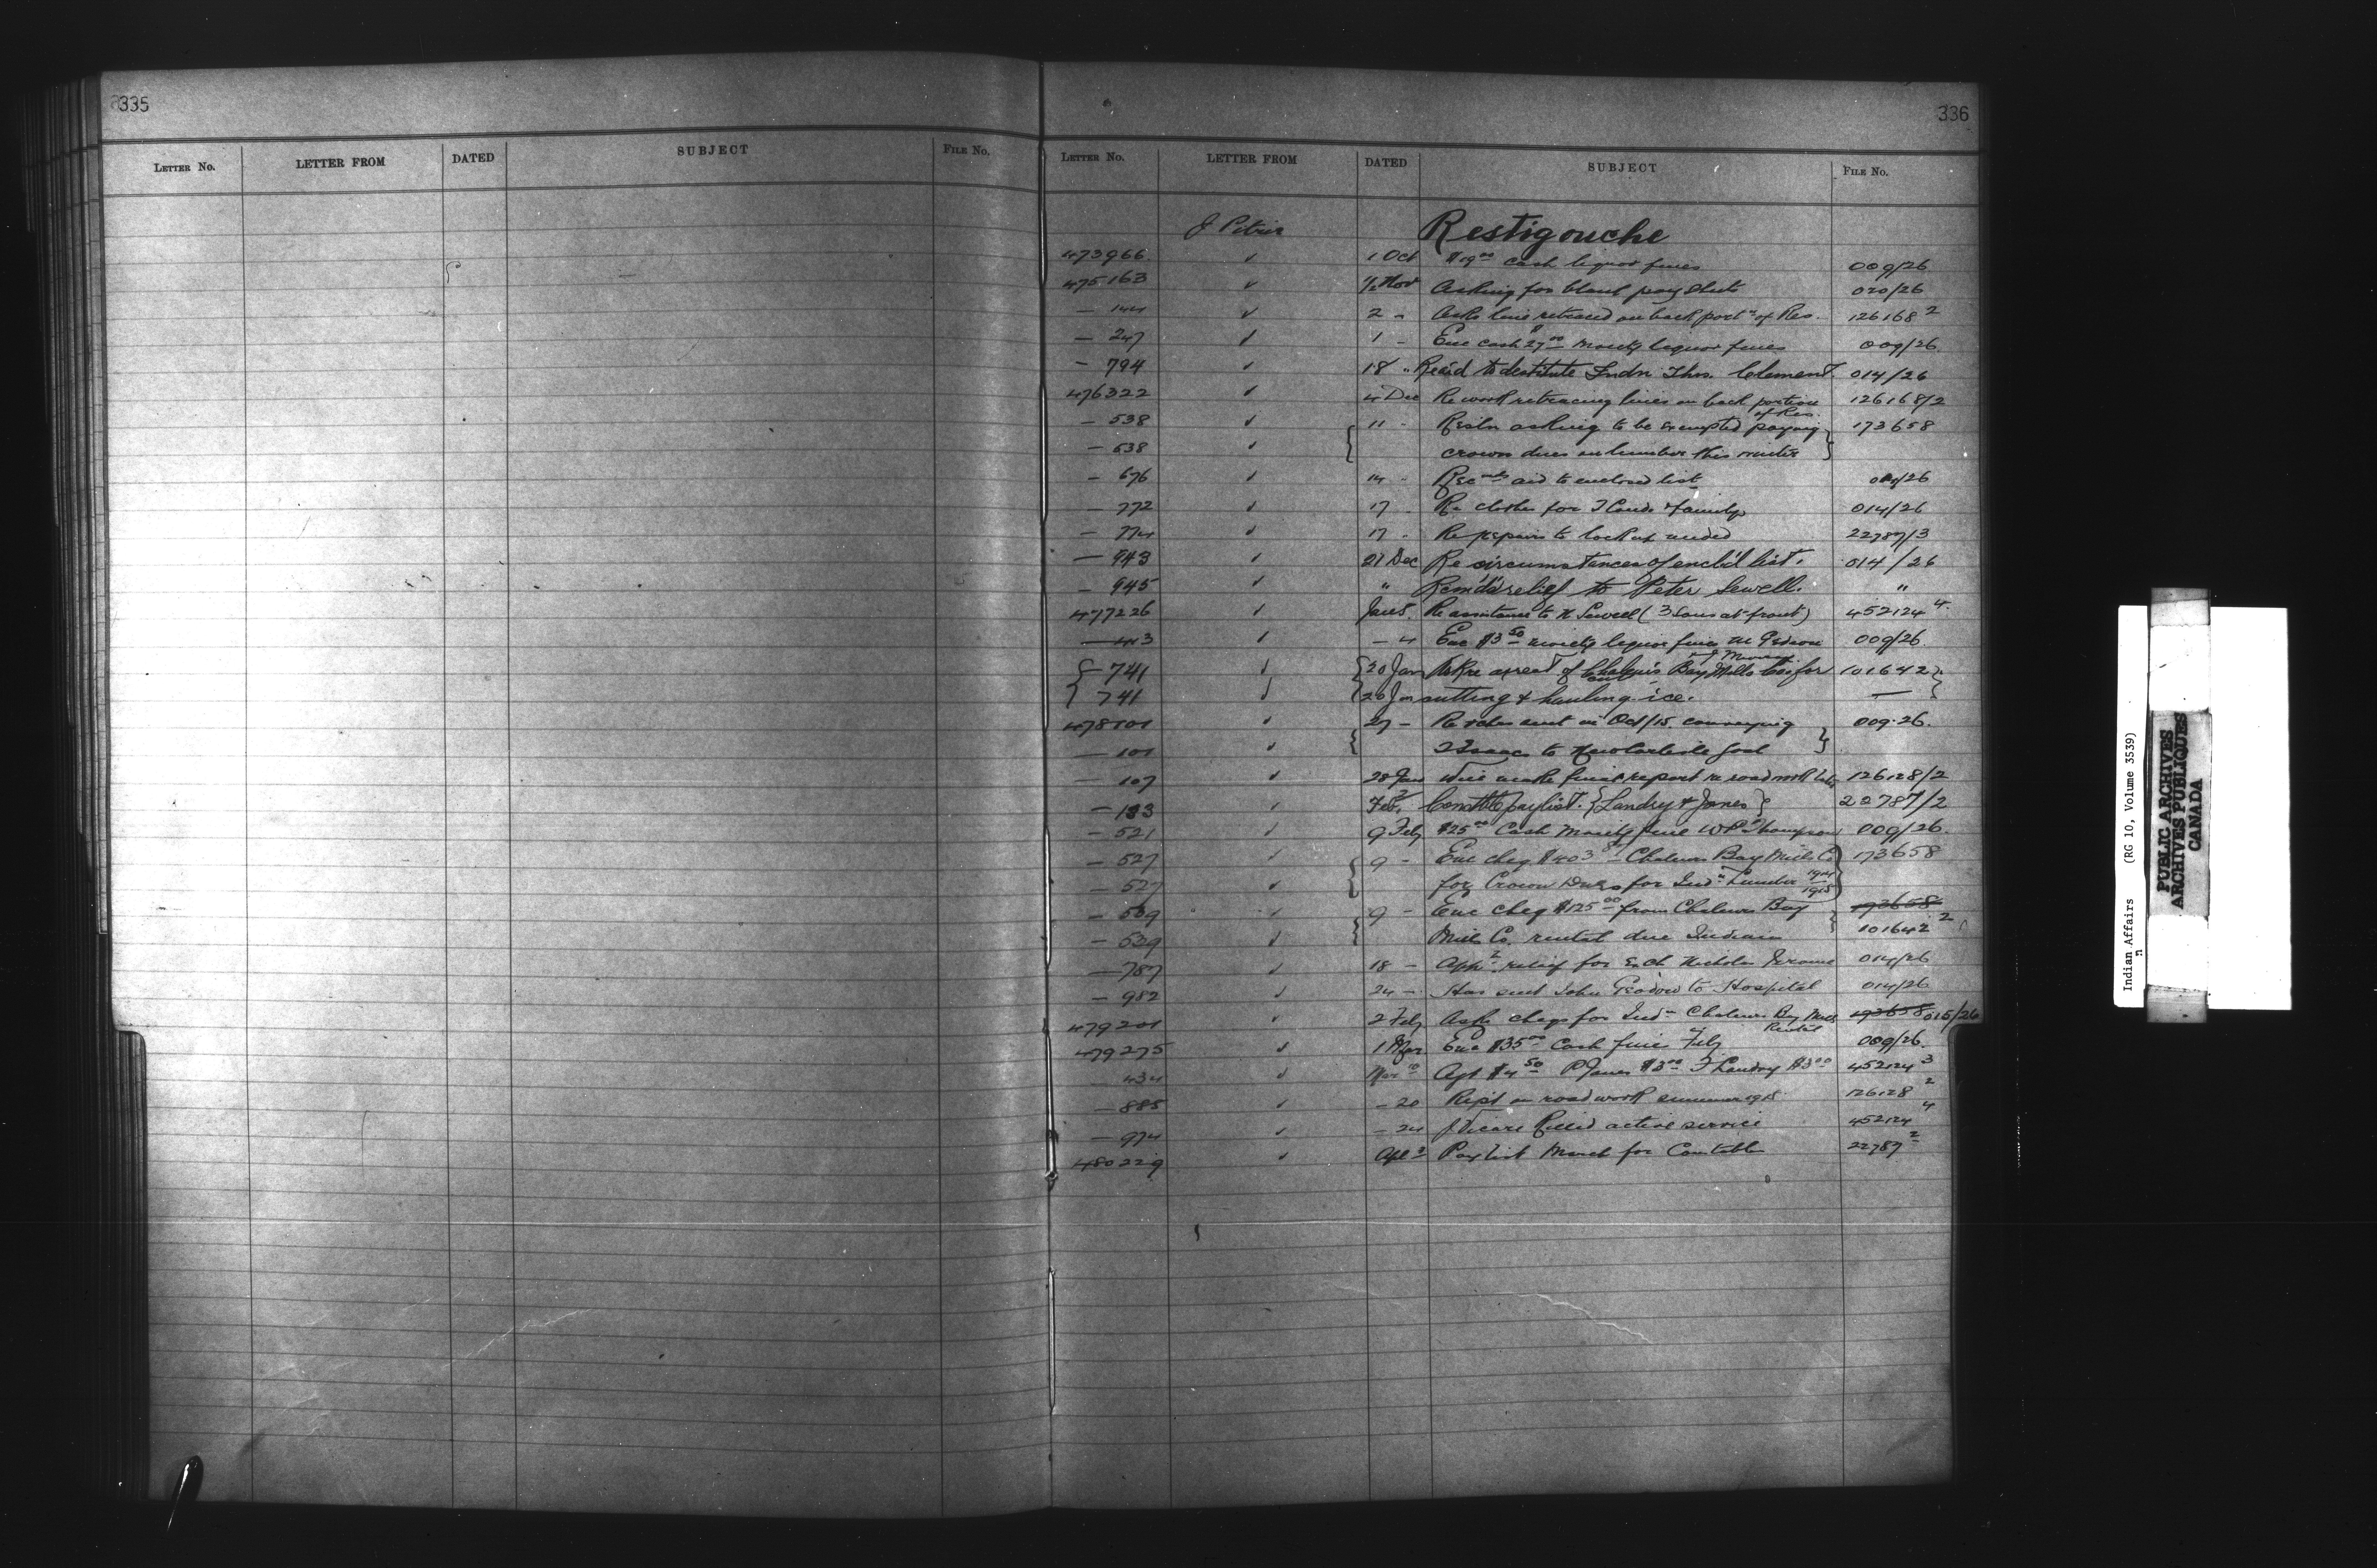 335
LETTER No. LETTER FROM DATED SUBJECT FILE No.
336
LETTER No. LETTER FROM DATED SUBJECT FILE No.
J Pitre Restigouche
473966 ✓ 1 Oct $19.00 cash liquor fines 009/26
475163 ✓ Nov Asking for blank pay sheets 020/26
— 144 ✓ 2 " Asks line retraced on back port^n of Res. 126168 2
— 247 ✓ 1 - Enc cash 27.00 moiety liquor fines 009/26
— 794 ✓ 18 " Re aid to destitute Indn Thos. Clement. 014/26
476322 ✓ 4 Dec Re work retracing lines on back portion of Res. 126168/2
— 538 ✓ 11 - Resltn asking to be exempted paying 173658
— 538 ✓ crown dues on lumber this winter
— 676 ✓ 14 - Recmds aid to enclosed list /26
— 772 ✓ 17 - Re clothes for family 014/26
— 774 ✓ 17 - Re repairs to lock up needed 22787/3
— 943 ✓ 21 Dec Re circumstances of encl'd list. 014/26
— 945 ✓ " Rem'd's relief to Peter Sewell. "
477226 ✓ Jan 5 Re assistance to N Sewell (3 Sons at front) 452124 4
— 443 ✓ — 4 Enc $3.50 moiety liquor fines 009/26
— 741 ✓ 20 Jan re arrest of Chaleurs Bay Mills for 101642
741 ✓ 20 Jan cutting & hauling ice. —
478101 ✓ 27 — Re vchr sent in Oct/15 conveying 009.26.
— 101 ✓ 2 Isaacs to New Carlisle Gaol
— 107 ✓ 28 Jan Will make final report re road work 126128/2
— 133 ✓ Feb. 2 Constble paylist. {Landry & Jones} 22787/2
— 521 ✓ 9 Feb $25.00 Cash Moiety fine W P Thompson 009/26.
— 527 ✓ 9 — Enc cheq $403 Chaleurs Bay Mills Co 173658
— 527 ✓ for Crown Dues for Ind^n Lumber 1914 1915
— 539 ✓ 9 — Enc cheq $125.00 from Chaleurs Bay 173658
— 539 ✓ Mill Co. rental due Indians 101642 2
— 787 ✓ 18 — relief for Nicholas Jerome 014/26
— 982 ✓ 24 — Has sent John to Hospital 014/26
479201 ✓ 2 Feb Asks cheqs for Ind^n Chaleurs Bay Mills Rental 173658 015/26
479275 ✓ 1 Mar Enc $35.00 Cash fines Feb 009/26.
— 434 ✓ Mar 10 Agt $4.50 P Jones $3.00 F Landry $3.00 452124 3
— 885 ✓ — 20 Rept on road work summer 1915 126128 2
— 974 ✓ — 24 J Vicaire Killed active service 452124 4
480229 ✓ Apl 3 Pay list March for Constables 22787 2
Indian Affairs (RG 10, Volume 3539)
PUBLIC ARCHIVES
ARCHIVES PUBLIQUES
CANADA